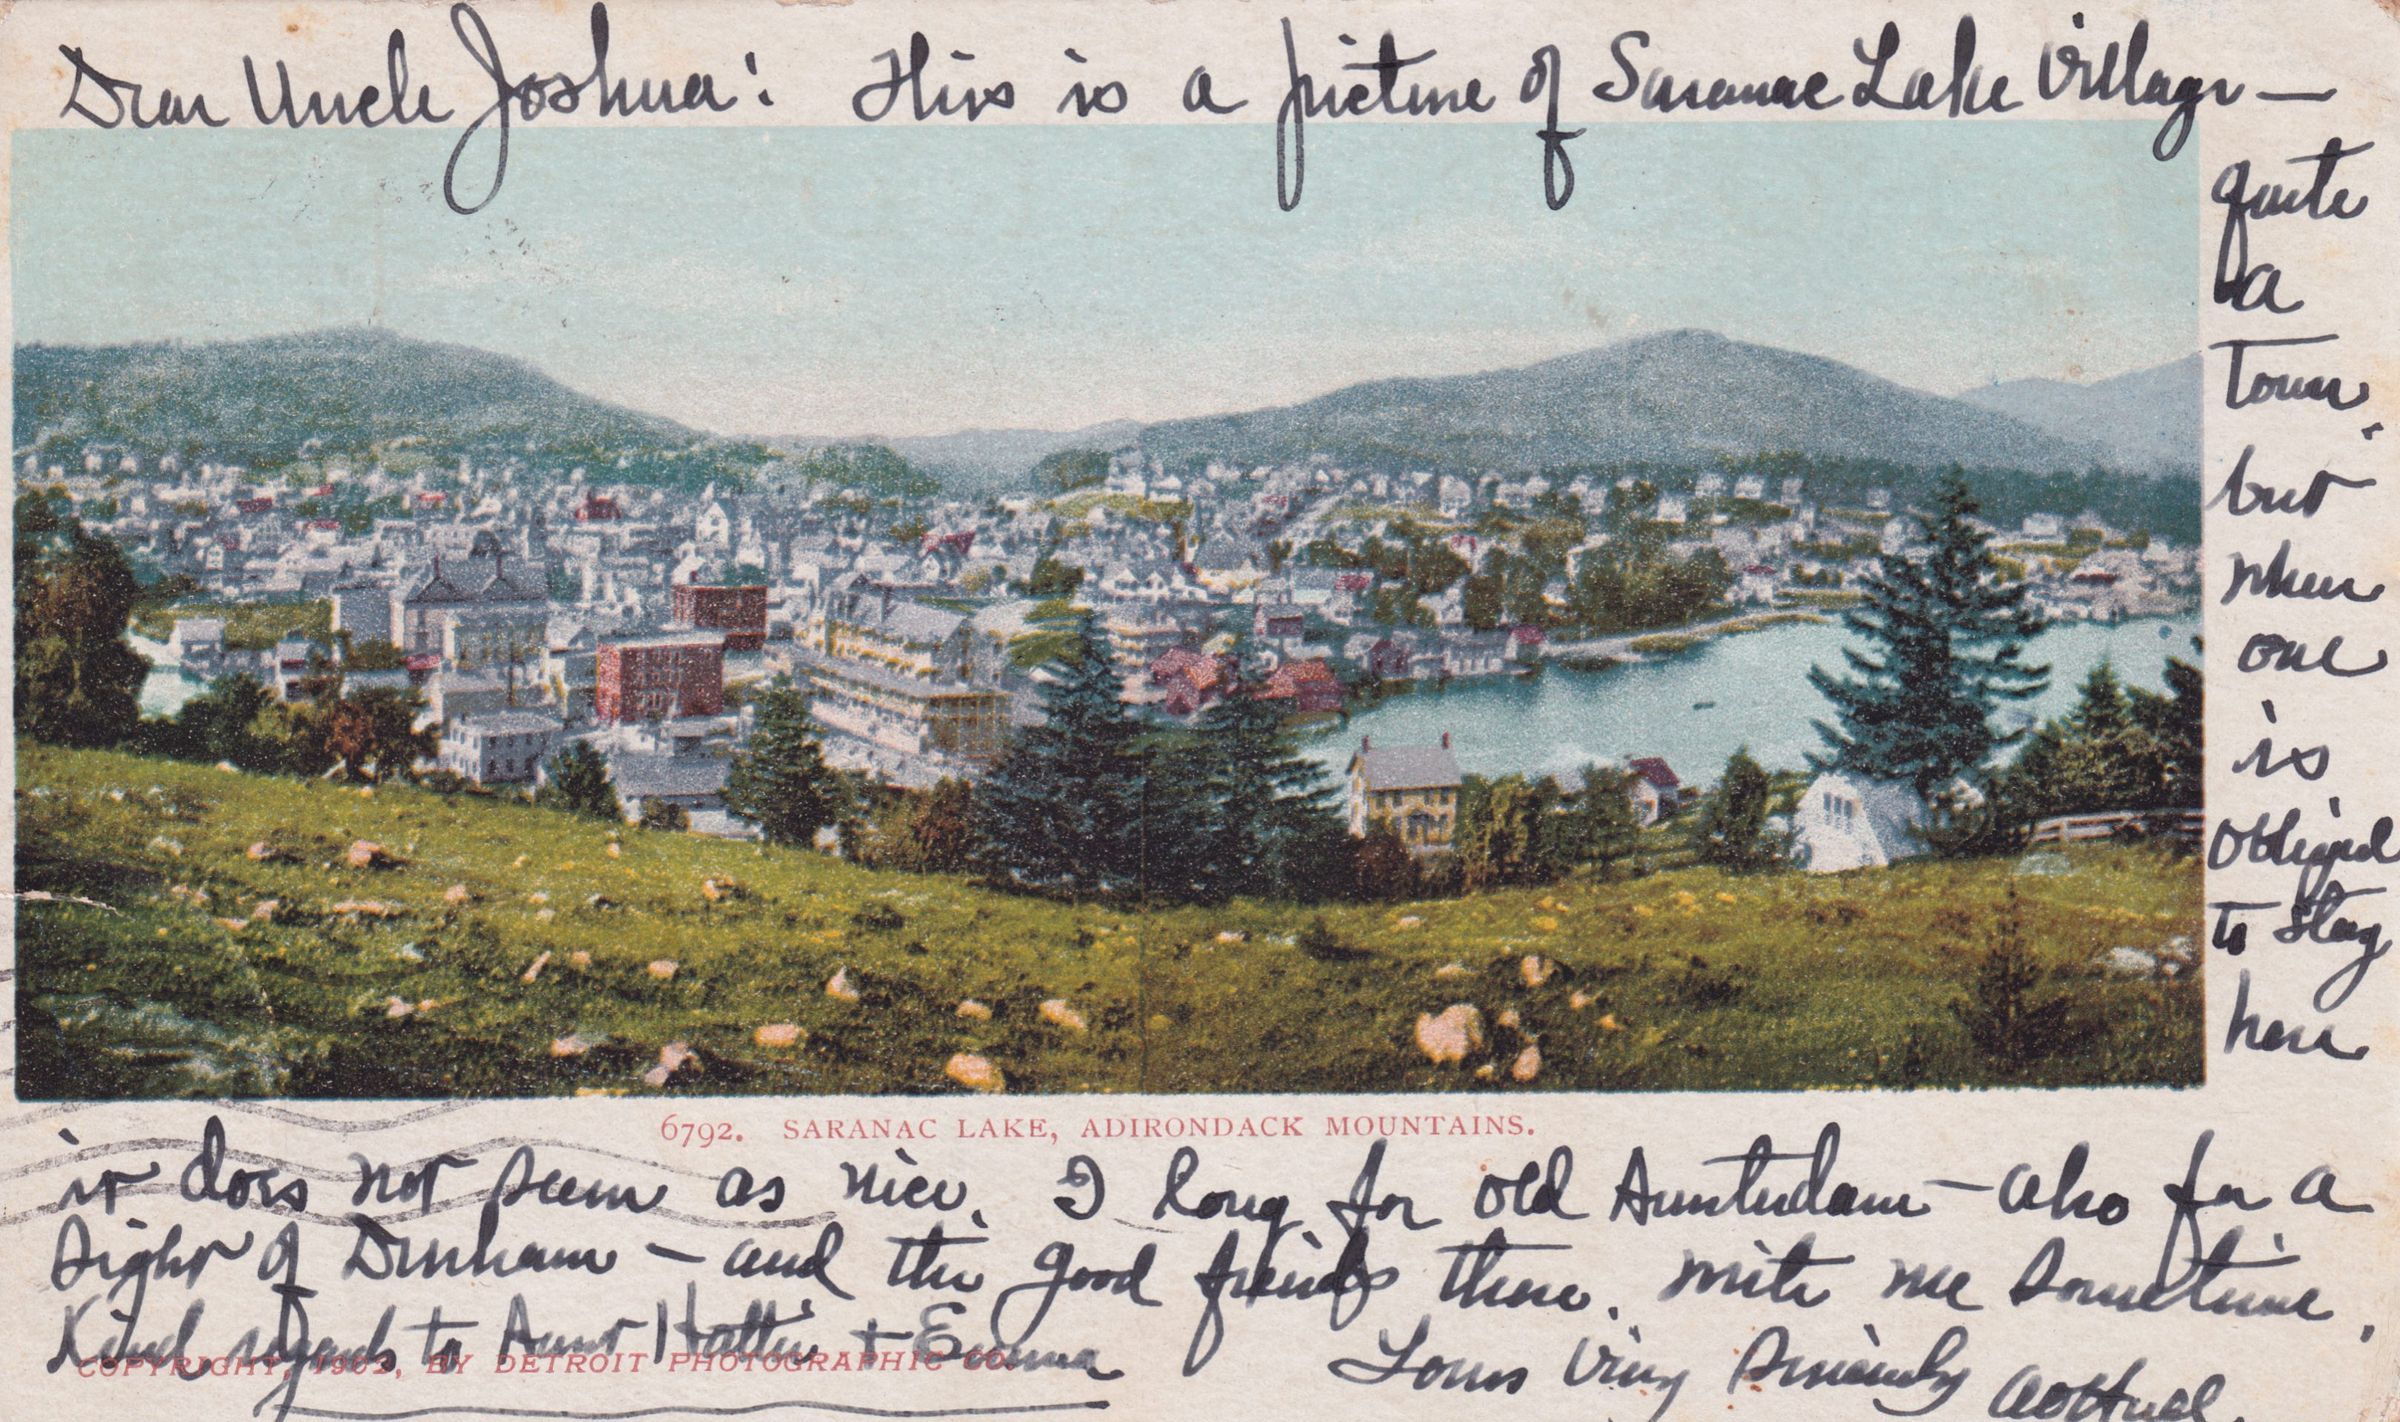 Dear Uncle Joshua: This is a picture of Saranac Lake Village —
quite
a
town,
but
when
one
is
obliged
to stay
here
6792. SARANAC LAKE, ADIRONDACK MOUNTAINS.
it does not seem as nice. I long for old Amsterdam — also for a
sight of Durham — and the good friends there. Write me sometime.
Kind regards to Aunt Hattie + Emma
COPYRIGHT, 1902, BY DETROIT PHOTOGRAPHIC CO.
Yours Very Sincerely